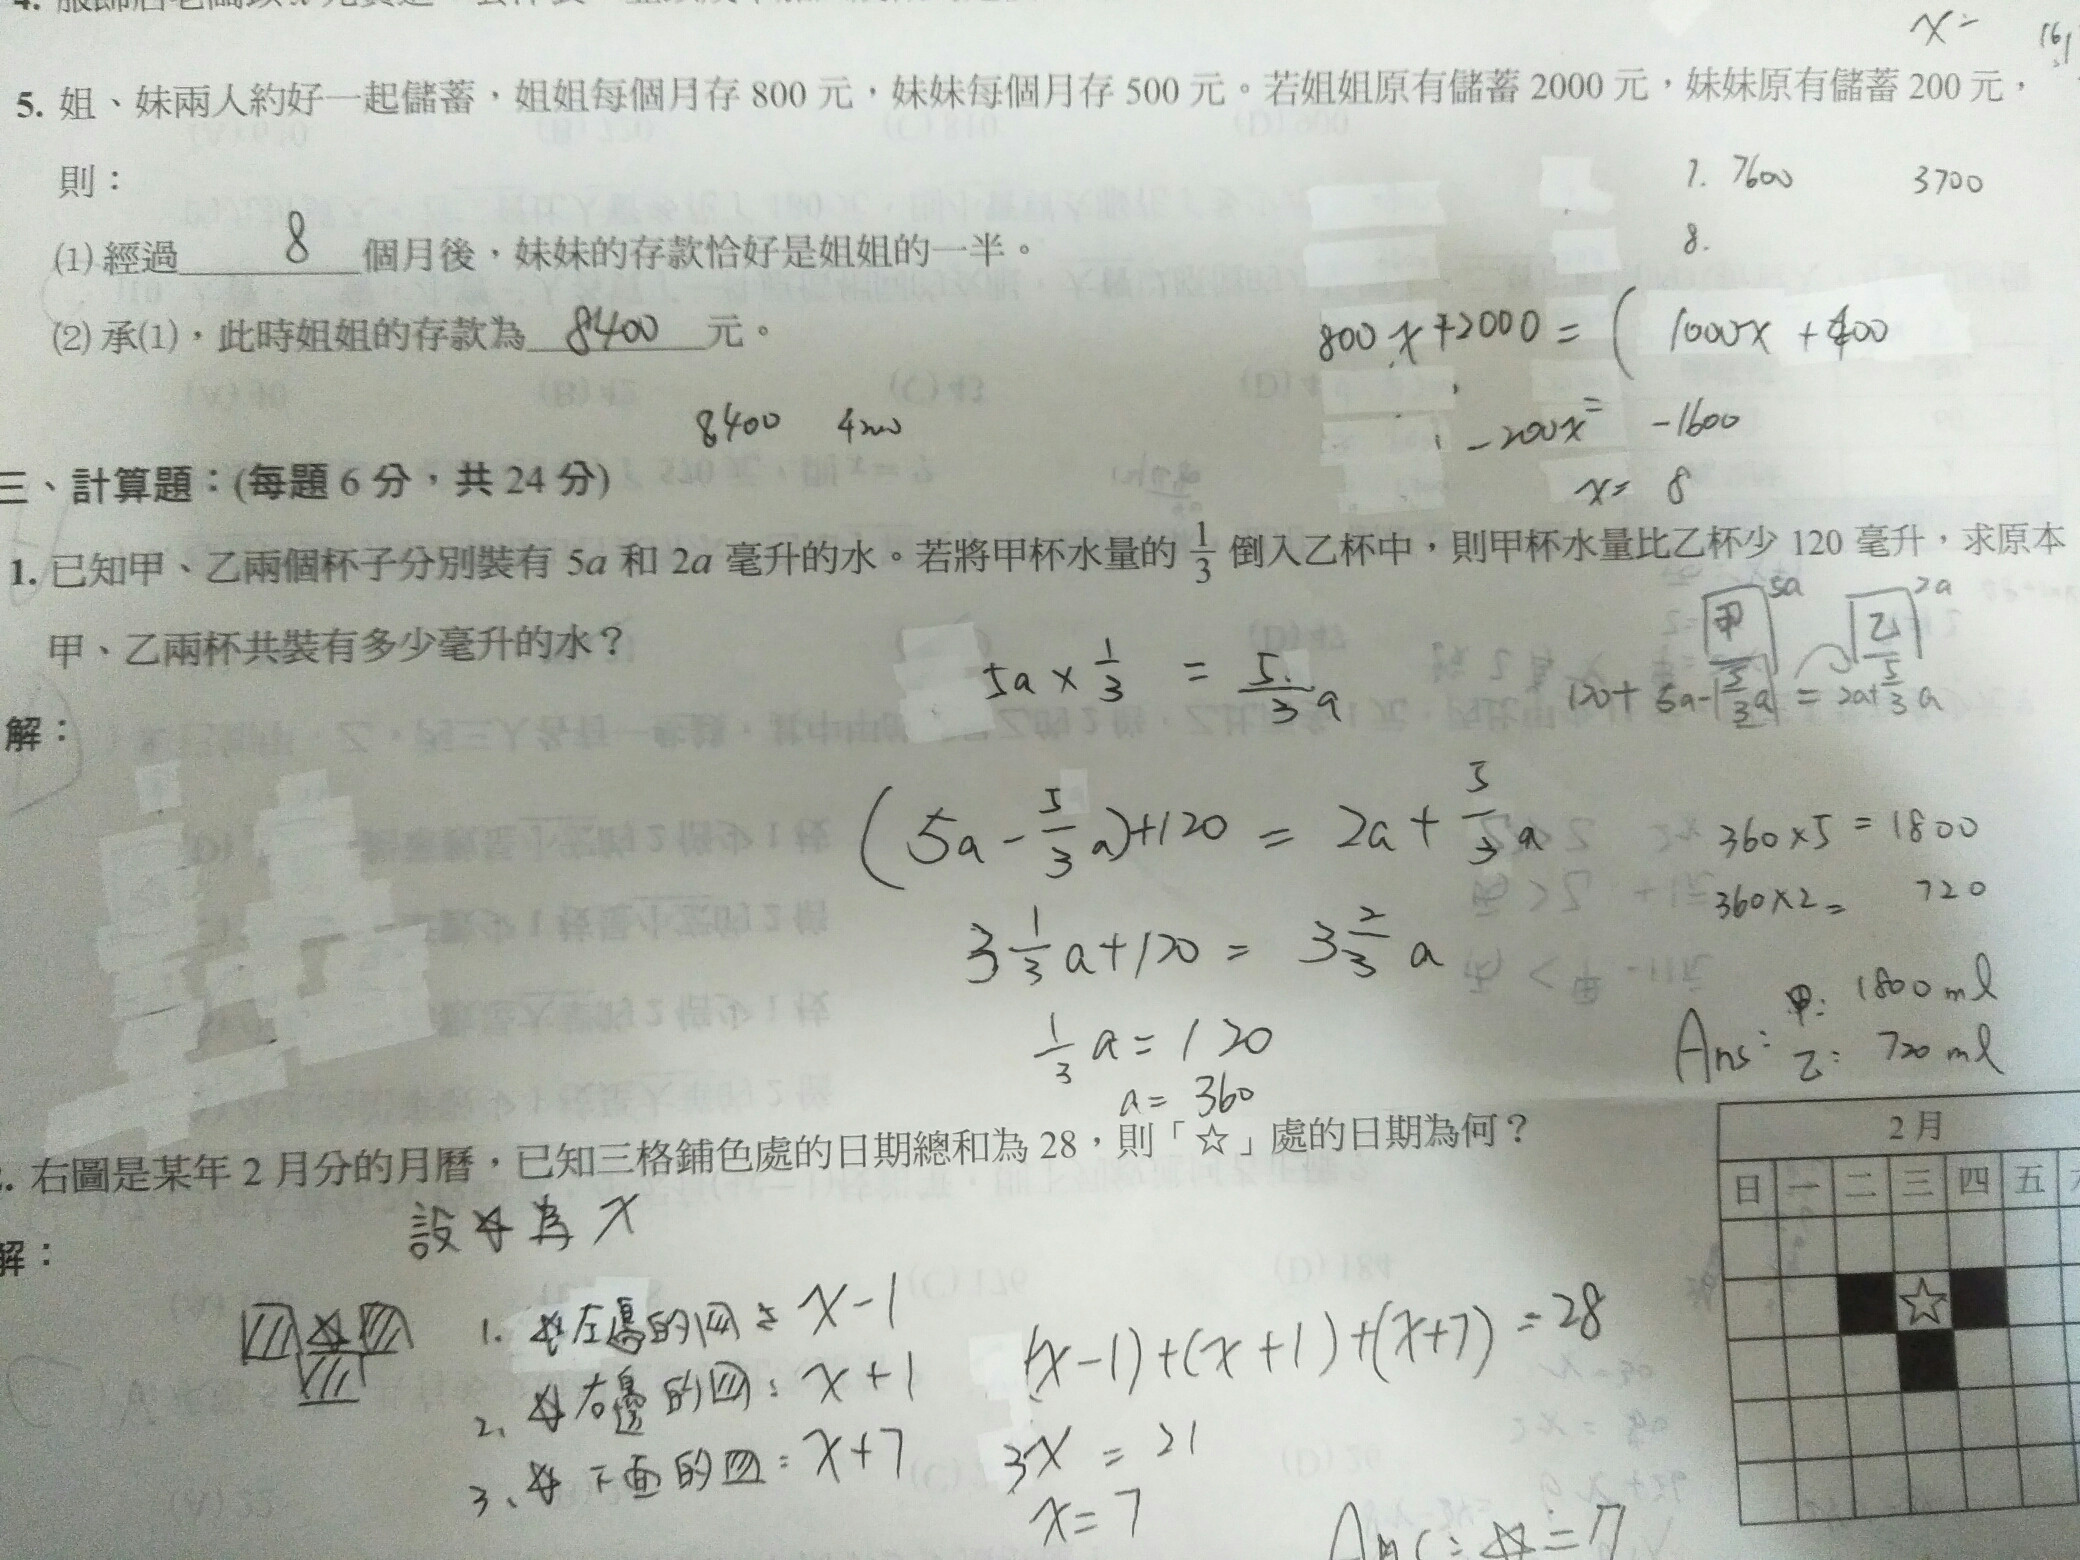 x=
5. 姐、妹兩人約好一起儲蓄，姐姐每個月存 800 元，妹妹每個月存 500 元。若姐姐原有儲蓄 2000 元，妹妹原有儲蓄 200 元，
則：
7. 7600 3700
8.
(1) 經過 8 個月後，妹妹的存款恰好是姐姐的一半。
(2) 承(1)，此時姐姐的存款為 8400 元。
800x+2000 = ( 1000x + 400
8400 4200
-200x = -1600
x= 8
三、計算題：(每題 6 分，共 24 分)
1. 已知甲、乙兩個杯子分別裝有 5a 和 2a 毫升的水。若將甲杯水量的 1/3 倒入乙杯中，則甲杯水量比乙杯少 120 毫升，求原本
甲、乙兩杯共裝有多少毫升的水？
甲 5a 乙 2a
5a × 1/3 = 5/3 a
120+ 5a-5/3a = 2a+5/3a
解：
(5a - 5/3 a)+120 = 2a + 5/3 a
360×5 = 1800
360×2= 720
3 1/3 a+120 = 3 2/3 a
1/3 a = 120
a= 360
Ans: 甲: 1800 ml
乙: 720 ml
. 右圖是某年 2 月分的月曆，已知三格鋪色處的日期總和為 28，則「☆」處的日期為何？
2 月
日 一 二 三 四 五
☆
設☆為 x
解：
1. ☆左邊的▨: x-1
2. ☆右邊的▨: x+1
3. ☆下面的▨: x+7
(x-1)+(x+1)+(x+7) =28
3x = 21
x= 7
Ans: ☆=7